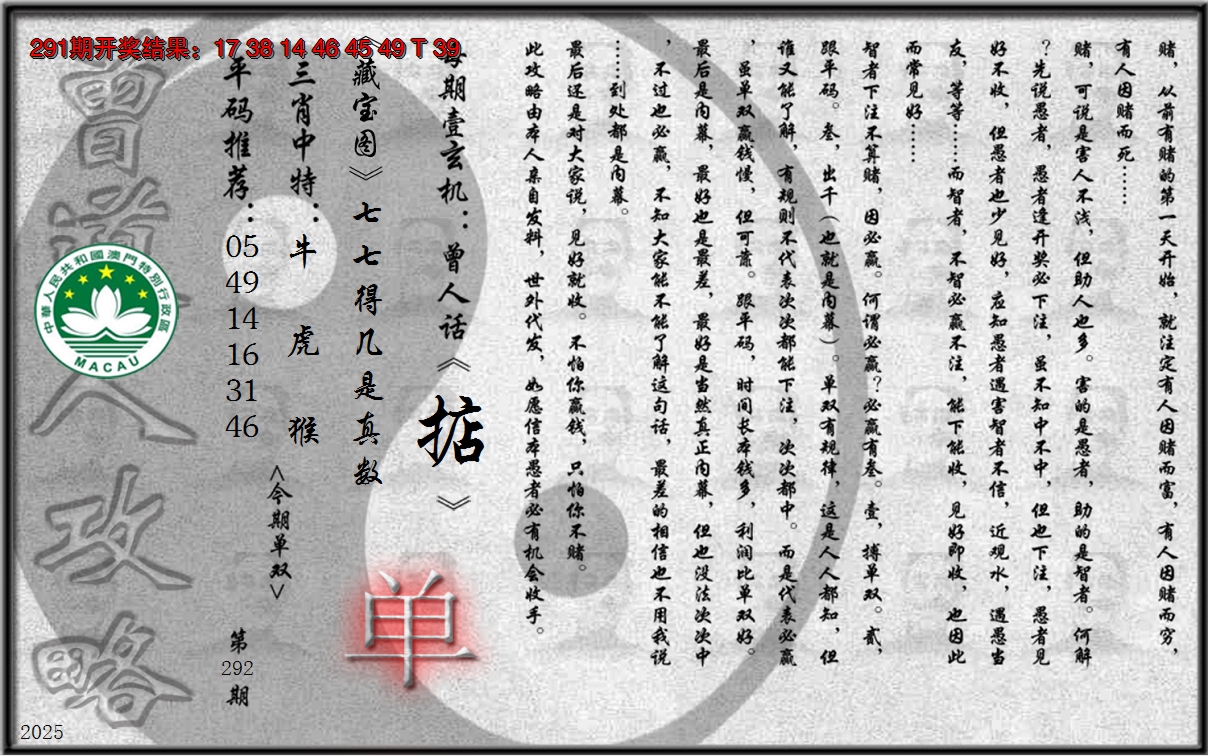 291期开奖结果：17 38 14 46 45 49 T 39
赌，从前有赌的第一天开始，就注定有人因赌而富，有人因赌而穷，
有人因赌而死……
赌，可说是害人不浅，但助人也多。害的是愚者，助的是智者。何解
？先说愚者，愚者逢开奖必下注，虽不知中不中，但也下注，愚者见
好不收，但愚者也少见好，应知愚者遇害智者不信，近观水，遇愚当
友，等等……而智者，不智必赢不注，能下能收，见好即收，也因此
而常见好……
智者下注不算赌，因必赢。何谓必赢？必赢有叁。壹，搏单双。贰，
跟平码。叁，出千（也就是内幕）。单双有规律，这是人人都知，但
谁又能了解，有规则不代表次次都能下注，次次都中。而是代表必赢
，虽单双赢钱慢，但可靠。跟平码，时间长本钱多，利润比单双好。
最后是内幕，最好也是最差，最好是当然真正内幕，但也没法次次中
，不过也必赢，不知大家能不能了解这句话，最差的相信也不用我说
……到处都是内幕。
最后还是对大家说，见好就收。不怕你赢钱，只怕你不赌。
此攻略由本人亲自发料，世外代发，如愿信本愚者必有机会收手。
每期壹玄机：曾人话《掂》
《藏宝图》七七得几是真数
单
三肖中特：牛 虎 猴
<今期单双>
平码推荐：05 49 14 16 31 46
第292期
曾道人攻略
中華人民共和國澳門特別行政區
MACAU
2025